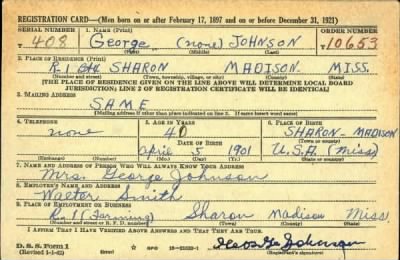 REGISTRATION CARD—(Men born on or after February 17, 1897 and on or before December 31, 1921)
SERIAL NUMBER 1. NAME (Print) ORDER NUMBER
T 408 George (none) JOHNSON T10653
(First) (Middle) (Last)
2. PLACE OF RESIDENCE (Print)
R.1 SHARON MADISON. MISS.
(Number and street) (Town, township, village, or city) (County) (State)
[THE PLACE OF RESIDENCE GIVEN ON THE LINE ABOVE WILL DETERMINE LOCAL BOARD
JURISDICTION; LINE 2 OF REGISTRATION CERTIFICATE WILL BE IDENTICAL]
3. MAILING ADDRESS
SAME
(Mailing address if other than place indicated on line 2. If same insert word same)
4. TELEPHONE 5. AGE IN YEARS 6. PLACE OF BIRTH
none 40 SHARON-MADISON
DATE OF BIRTH (Town or county)
april 5 1901 U.S.A (Miss)
(Exchange) (Number) (Mo.) (Day) (Yr.) (State or country)
7. NAME AND ADDRESS OF PERSON WHO WILL ALWAYS KNOW YOUR ADDRESS
Mrs. George Johnson
8. EMPLOYER'S NAME AND ADDRESS
Walter Smith
9. PLACE OF EMPLOYMENT OR BUSINESS
R.1 (Farming) Sharon Madison Miss.
(Number and street or R. F. D. number) (Town) (County) (State)
I AFFIRM THAT I HAVE VERIFIED ABOVE ANSWERS AND THAT THEY ARE TRUE.
D. S. S. Form 1
(Revised 1-1-42) Johnson
(Registrant's signature)